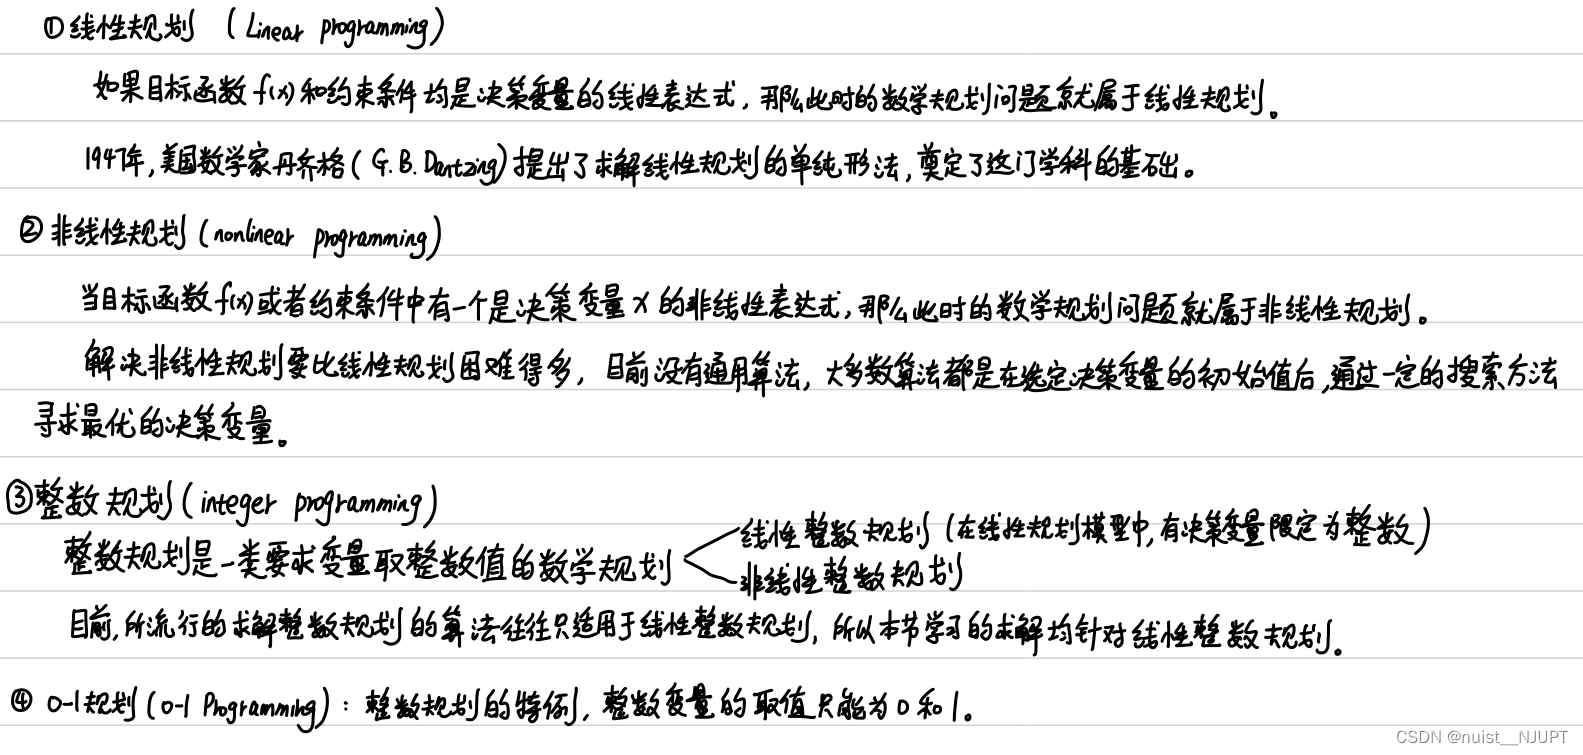 ① 线性规划 (Linear programming)
如果目标函数 f(x) 和约束条件均是决策变量的线性表达式，那么此时的数学规划问题就属于线性规划。
1947年，美国数学家丹齐格(G.B.Dantzing)提出了求解线性规划的单纯形法，奠定了这门学科的基础。
② 非线性规划(nonlinear programming)
当目标函数f(x)或者约束条件中有一个是决策变量x的非线性表达式，那么此时的数学规划问题就属于非线性规划。
解决非线性规划要比线性规划困难得多，目前没有通用算法，大多数算法都是在选定决策变量的初始值后，通过一定的搜索方法
寻求最优的决策变量。
③整数规划(integer programming)
整数规划是一类要求变量取整数值的数学规划
线性整数规划(在线性规划模型中，有决策变量限定为整数)
非线性整数规划
目前，所流行的求解整数规划的算法往往只适用于线性整数规划，所以本节学习的求解均针对线性整数规划。
④ 0-1规划(0-1 Programming)：整数规划的特例，整数变量的取值只能为0和1。
CSDN @nuist__NJUPT